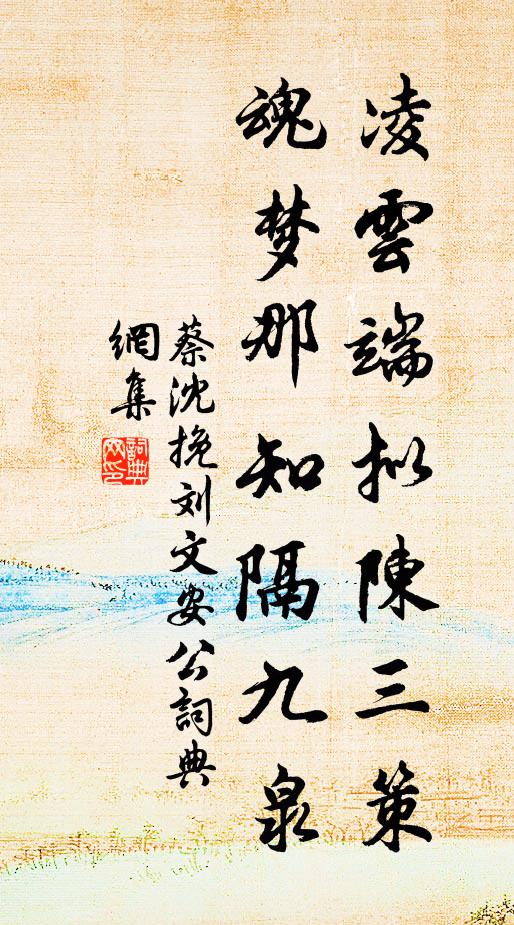 凌雲端拟陳三策
魂梦那知隔九泉
蔡沈挽刘文安公詞典
網集